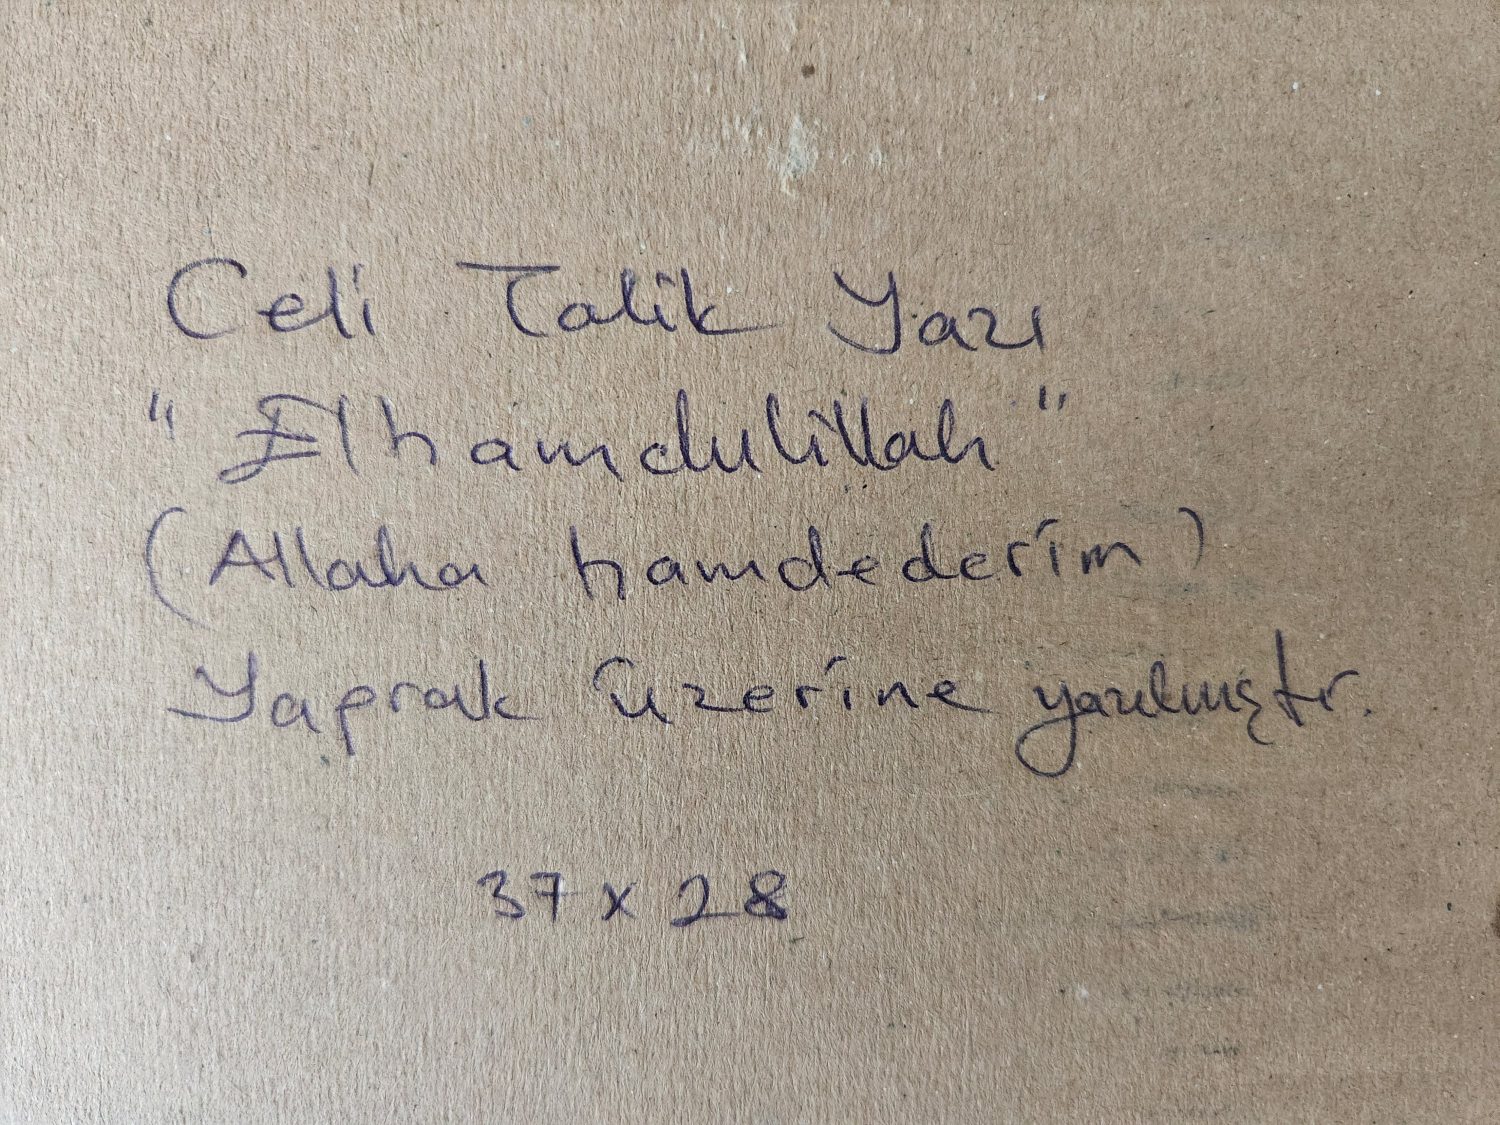 Celi Talik Yazı
"Elhamdulillah"
(Allaha hamdederim)
Yaprak üzerine yazılmıştır.
37 x 28